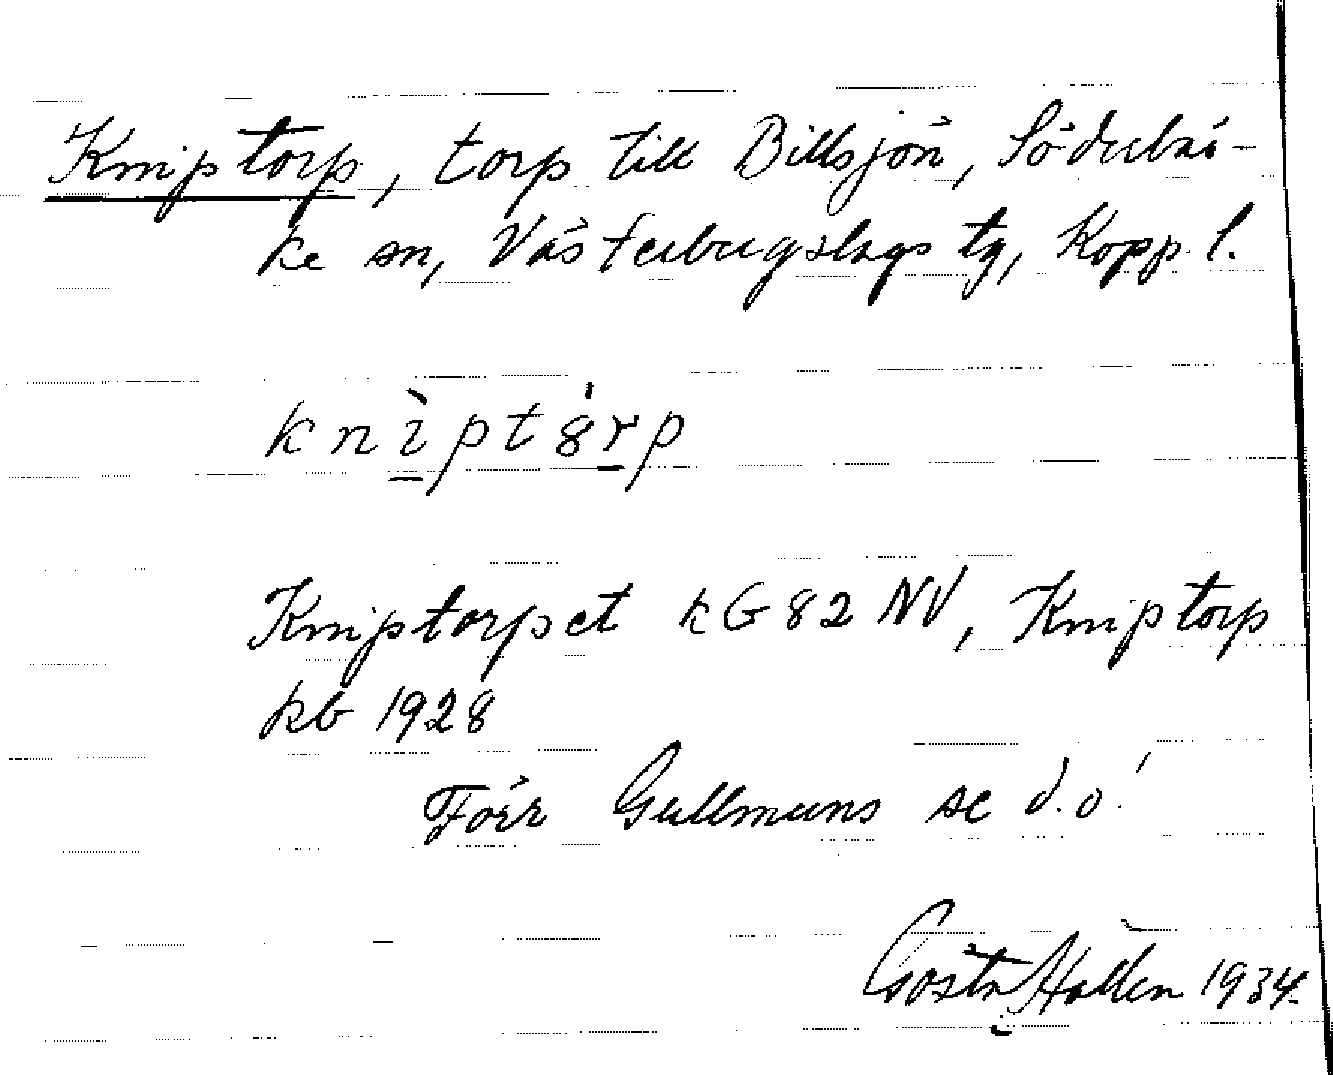 Kniptorp, torp till Billsjön, Söderbär-
ke sn, Västerbergslags tg, Kopp. l.
knìptórp
Kniptorpet kG 82 NV, Kniptorp
kb 1928
Förr Gullmuns se d. o!
Gösta Hallén 1934.